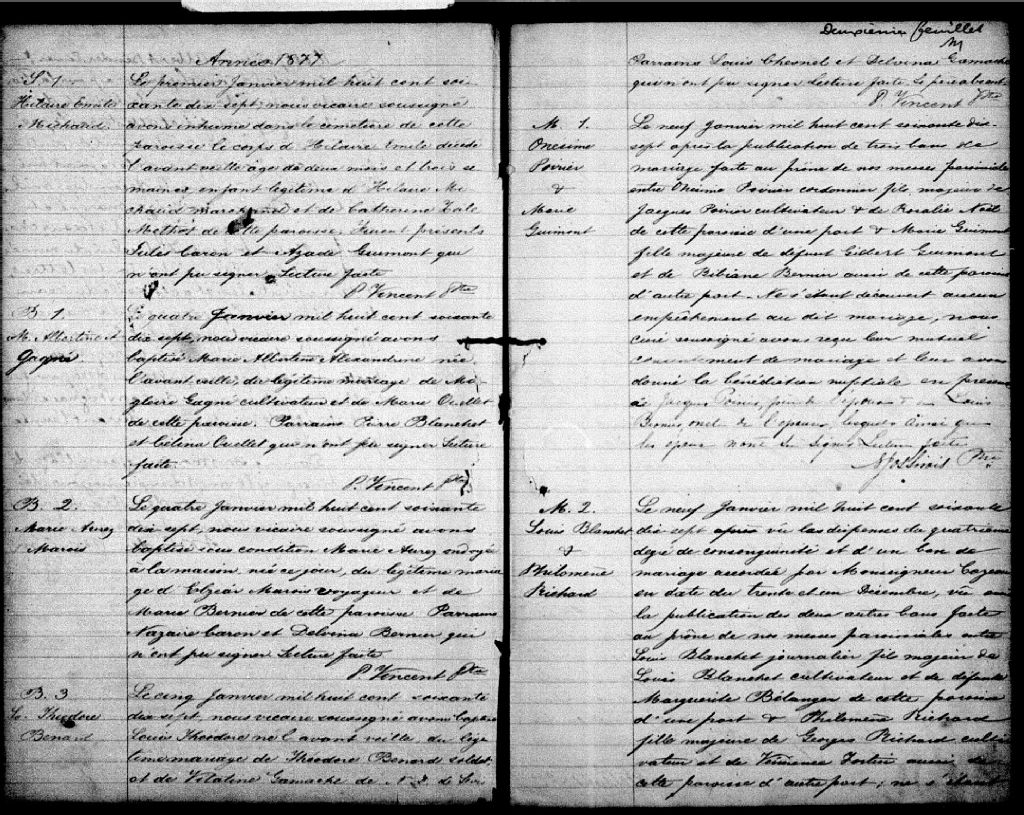 Année 1877
S. 1
Hilaire Emile
Michaud
Le premier Janvier mil huit cent soi-
xante dix sept, nous vicaire soussigné
avons inhumé dans le cimetière de cette
paroisse le corps d'Hilaire Emile décédé
l'avant veille âgé de deux mois et trois se-
maines enfant légitime d'Hilaire Mi-
chaud marchand et de Catherine
Methot de cette paroisse. Furent présents
Jules Caron et Azade Guimont qui
n'ont pu signer. Lecture faite
P. Vincent Ptre
B 1
M. Albertine A
Gagné
Le quatre Janvier mil huit cent soixante
dix sept, nous vicaire soussigné avons
baptisé Marie Albertine Alexandrine née
l'avant veille, du légitime mariage de Ma-
gloire Gagné cultivateur et de Marie Ouellet
de cette paroisse. Parrains Pierre Blanchet
et Célina Ouellet qui n'ont pu signer Lecture
faite.
P. Vincent Ptre
B. 2.
Marie Aurez
Marois
Le quatre Janvier mil huit cent soixante
dix sept, nous vicaire soussigné avons
baptisé sous condition Marie Aurez ondoyé
à la maison née ce jour, du légitime maria-
ge d'Elzéar Marois voyageur et de
Marie Bernier de cette paroisse Parrains
Nazaire Caron et Delvina Bernier qui
n'ont pu signer Lecture faite
P. Vincent Ptre
B. 3
Ls. Théodore
Benard
Le cinq Janvier mil huit cent soixante
dix sept, nous vicaire soussigné avons baptisé
Louis Théodore né l'avant veille, du légi-
time mariage de Théodore Benard soldat
et de Vitaline Gamache de N. D. de
Deuxième feuillet
M
Parrains Louis Chesnel et Delvina Gamache
qui n'ont pu signer Lecture faite le père absent
P. Vincent Ptre
M. 1.
Onesime
Poirier
&
Marie
Guimont
Le neuf Janvier mil huit cent soixante dix-
sept après la publication de trois bans de
mariage faite au prône de nos messes paroissiales
entre Onésime Poirier cordonnier fils majeur de
Jacques Poirier cultivateur & de Rosalie Noël
de cette paroisse d'une part & Marie Guimont
fille majeure de défunt Gilbert Guimont
et de Bibiane Bernier aussi de cette paroisse
d'autre part. Ne s'étant découvert aucun
empêchement au dit mariage, nous
curé soussigné avons reçu leur mutuel
consentement de mariage et leur avons
donné la bénédiction nuptiale en présence
de Jacques Poirier, père de l'époux & de Louis
Bernier, oncle de l'épouse, lesquels ainsi que
les époux n'ont su signer Lecture faite
Ptre
M. 2.
Louis Blanchet
&
Philomène
Richard
Le neuf Janvier mil huit cent soixante
dix-sept après vu les dispenses du quatrième
degré de consanguinité et d'un ban de
mariage accordée par Monseigneur Cazeau
en date du trente et un Décembre, vu aussi
la publication des deux autres bans faite
au prône de nos messes paroissiales entre
Louis Blanchet journalier fils majeur de
Louis Blanchet cultivateur et de défunte
Marguerite Bélanger de cette paroisse
d'une part & Philomène Richard
fille majeure de Georges Richard culti-
vateur et de Fortin aussi de
cette paroisse d'autre part; ne s'étant